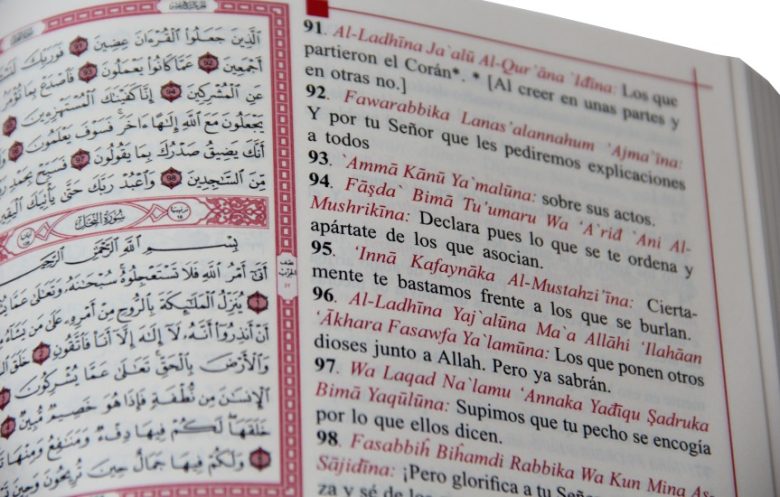 الَّذِينَ جَعَلُوا الْقُرْءَانَ عِضِينَ 91 فَوَرَبِّكَ
أَجْمَعِينَ 92 عَمَّا كَانُوا يَعْمَلُونَ 93 فَاصْدَعْ بِمَا تُؤْمَرُ
عَنِ الْمُشْرِكِينَ 94 إِنَّا كَفَيْنَاكَ الْمُسْتَهْزِءِينَ 95
يَجْعَلُونَ مَعَ اللَّهِ إِلَٰهًا ءَاخَرَ فَسَوْفَ يَعْلَمُونَ
أَنَّكَ يَضِيقُ صَدْرُكَ بِمَا يَقُولُونَ 97 فَسَبِّحْ بِحَمْدِ
مِّنَ السَّاجِدِينَ 98 وَاعْبُدْ رَبَّكَ حَتَّىٰ يَأْتِيَكَ الْيَقِينُ
سُورَةُ النَّحْلِ
بِسْمِ اللَّهِ الرَّحْمَٰنِ الرَّحِيمِ
أَتَىٰ أَمْرُ اللَّهِ فَلَا تَسْتَعْجِلُوهُ سُبْحَانَهُ وَتَعَالَىٰ عَمَّا
1 يُنَزِّلُ الْمَلَائِكَةَ بِالرُّوحِ مِنْ أَمْرِهِ عَلَىٰ مَن يَشَاءُ
أَنْ أَنذِرُوا أَنَّهُ لَا إِلَٰهَ إِلَّا أَنَا فَاتَّقُونِ 2 خَلَقَ
وَالْأَرْضَ بِالْحَقِّ تَعَالَىٰ عَمَّا يُشْرِكُونَ 3
الْإِنسَانَ مِن نُّطْفَةٍ فَإِذَا هُوَ خَصِيمٌ مُّبِينٌ 4
خَلَقَهَا لَكُمْ فِيهَا دِفْءٌ وَمَنَافِعُ وَمِنْهَا
5 وَلَكُمْ فِيهَا جَمَالٌ حِينَ تُرِيحُونَ وَحِينَ
91. Al-Ladhīna Ja`alū Al-Qur'āna `Iđīna: Los que
partieron el Corán*. * [Al creer en unas partes y
en otras no.]
92. Fawarabbika Lanas'alannahum 'Ajma`īna:
Y por tu Señor que les pediremos explicaciones
a todos
93. `Ammā Kānū Ya`malūna: sobre sus actos.
94. Fāşda` Bimā Tu'umaru Wa 'A`riđ `Ani Al-
Mushrikīna: Declara pues lo que se te ordena y
apártate de los que asocian.
95. 'Innā Kafaynāka Al-Mustahzi'īna: Cierta-
mente te bastamos frente a los que se burlan.
96. Al-Ladhīna Yaj`alūna Ma`a Allāhi 'Ilahāan
'Ākhara Fasawfa Ya`lamūna: Los que ponen otros
dioses junto a Allah. Pero ya sabrán.
97. Wa Laqad Na`lamu 'Annaka Yađīqu Şadruka
Bimā Yaqūlūna: Supimos que tu pecho se encogía
por lo que ellos dicen.
98. Fasabbiĥ Biĥamdi Rabbika Wa Kun Mina As-
Sājidīna: ¡Pero glorifica a tu Señor
za y sé de los